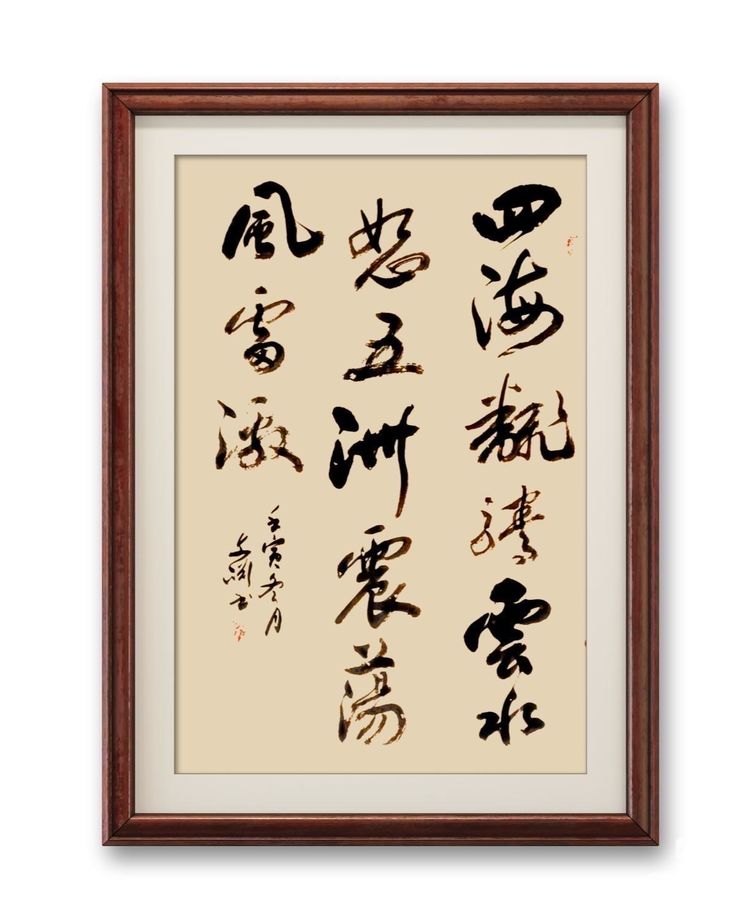 四海翻騰雲水
怒五洲震蕩
風雷激
壬寅冬月
文渊书